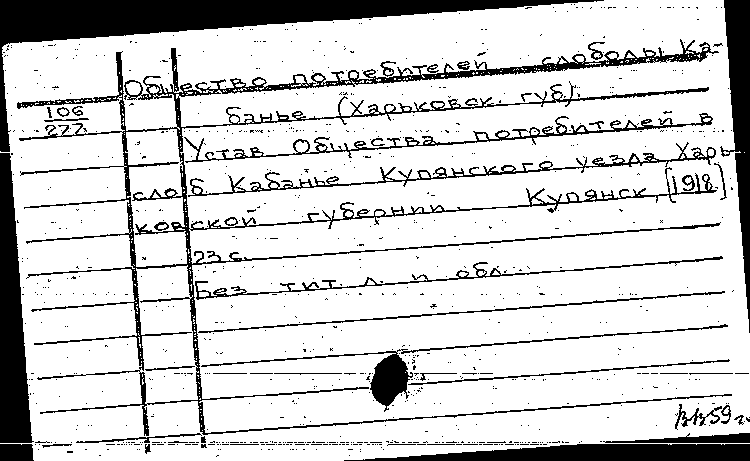 Общество потребителей слободы Ка-
106
277
банье (Харьковск. губ).
Устав Общества потребителей в
слоб Кабанье Купянского уезда Харь
ковской губернии. Купянск, [1918].
23 с.
Без тит. л. и обл.